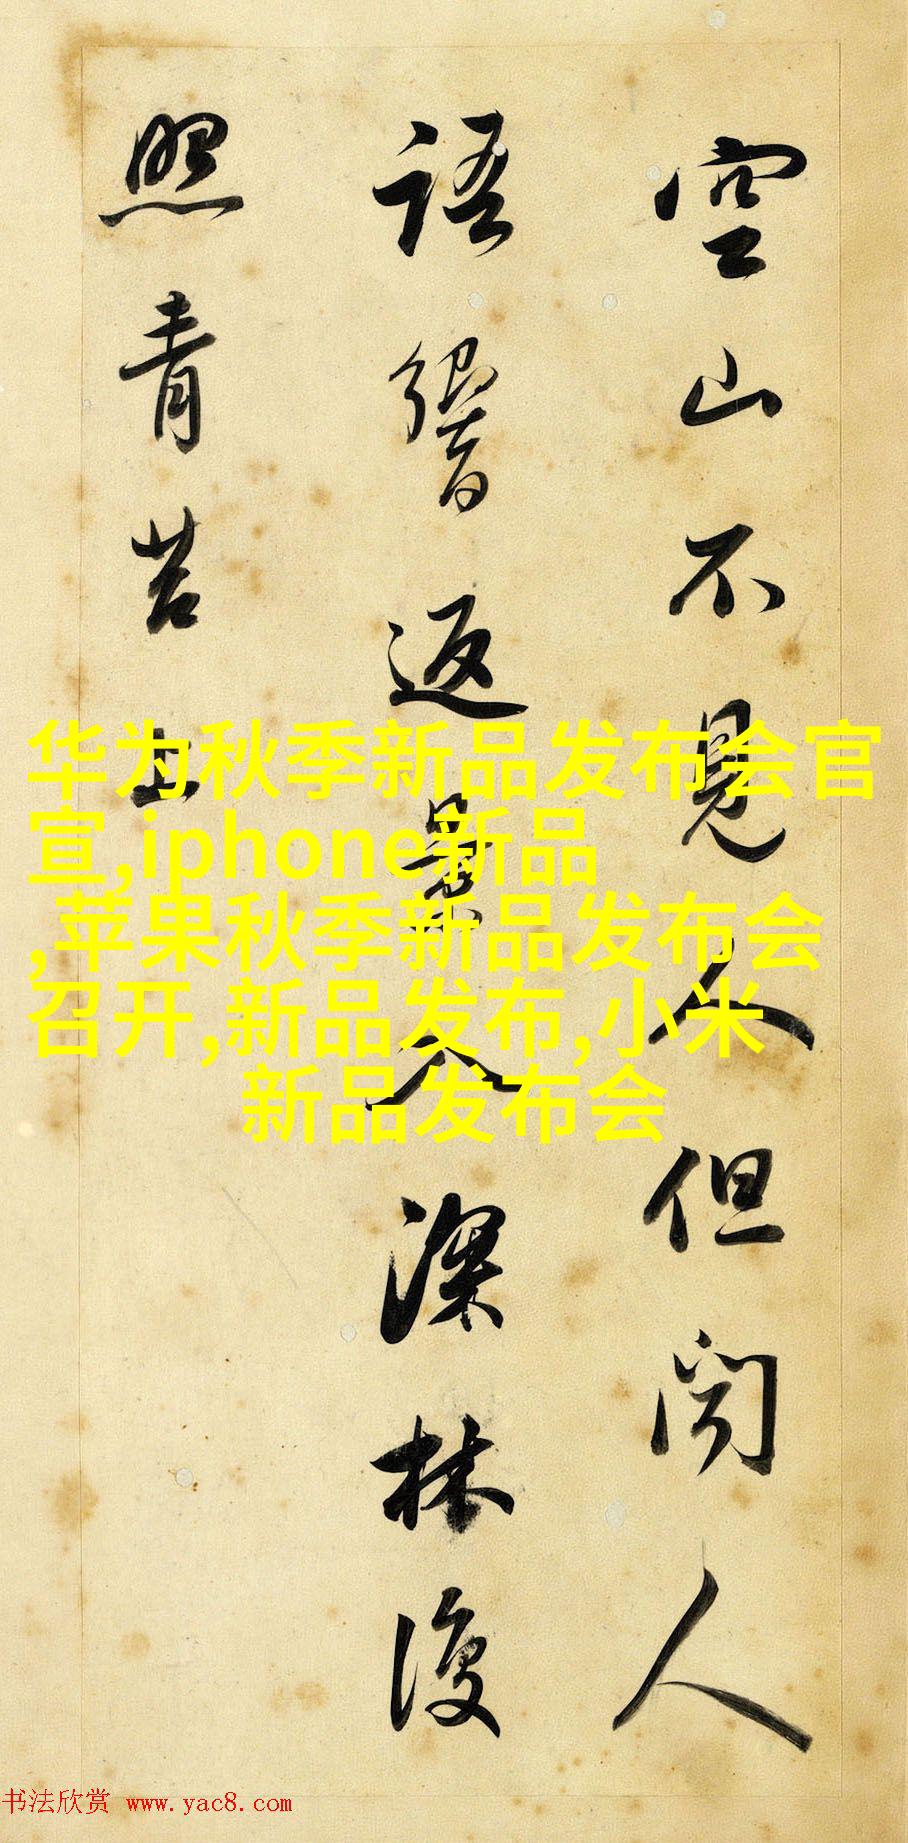 空山不見人但聞人
語響返景入深林復
照青苔上
华为秋季新品发布会官
宣,iphone新品
,苹果秋季新品发布会
召开,新品发布,小米
新品发布会
书法欣赏 www.yac8.com